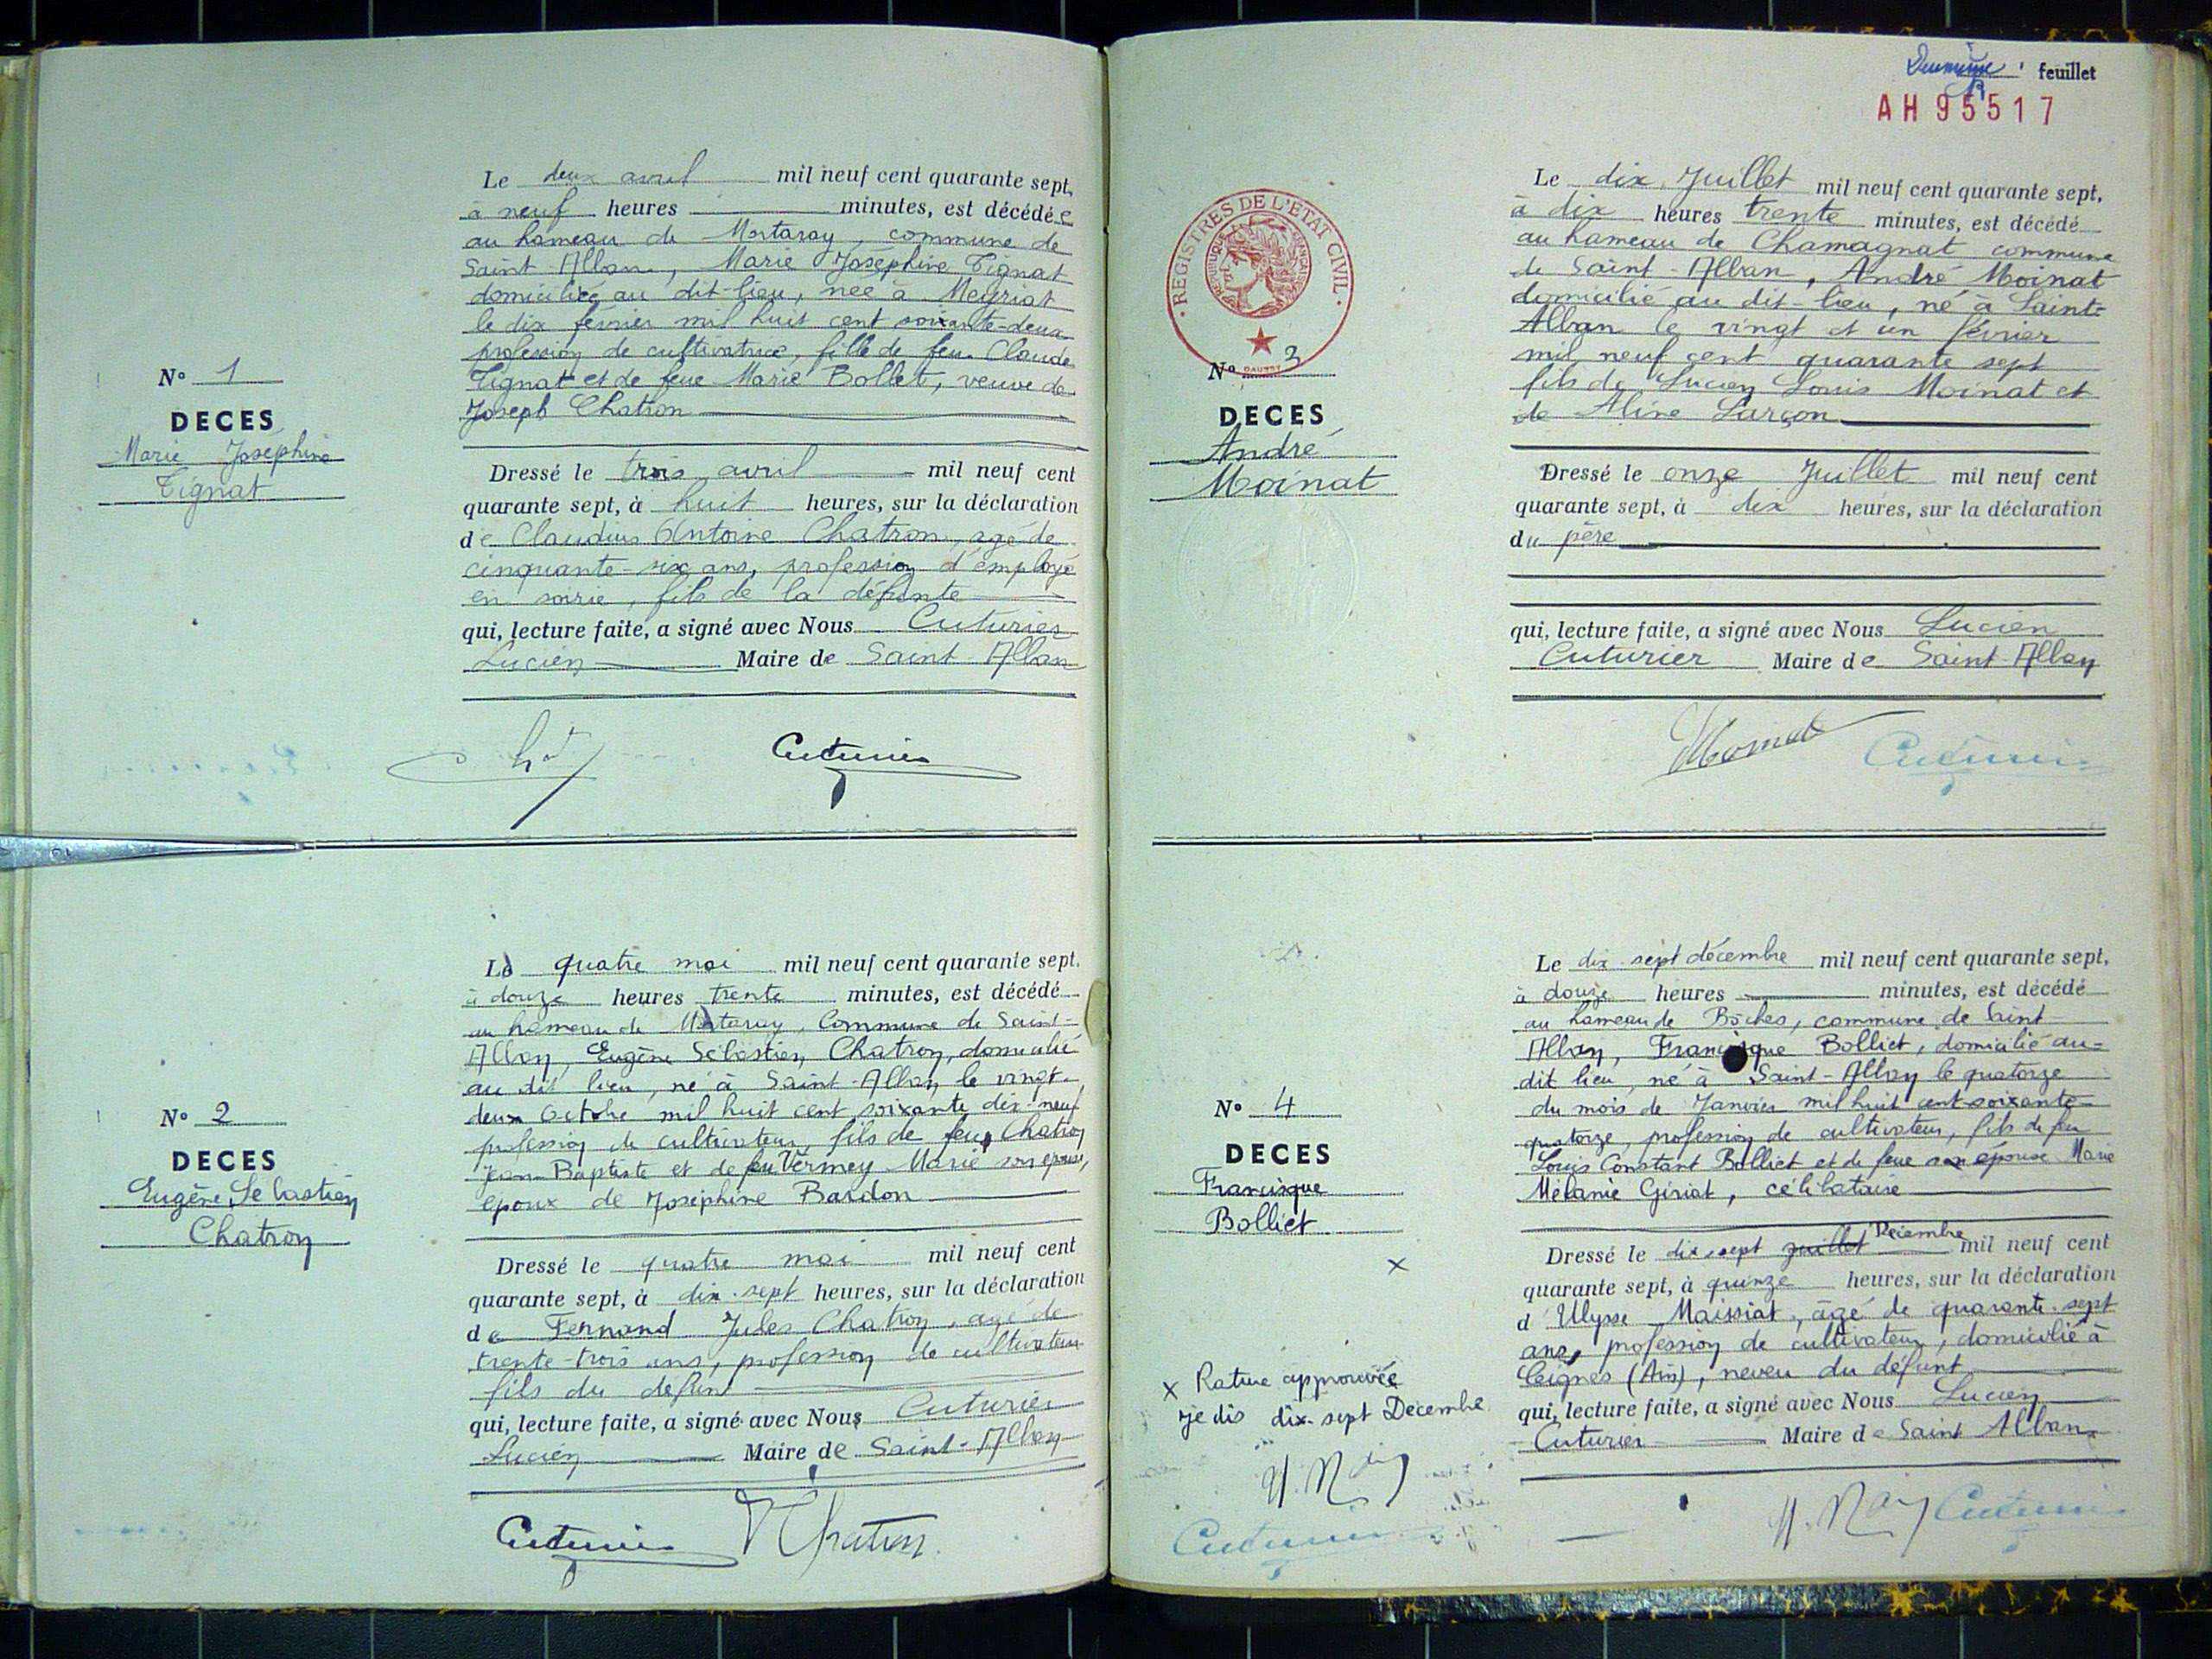 Le deux avril mil neuf cent quarante sept,
à neuf heures minutes, est décédée
au hameau de Mortaray, commune de
Saint-Alban, Marie Joséphine Tignat
domiciliée au dit-lieu, née à Meyriat
le dix février mil huit cent soixante-deux
profession de cultivatrice, fille de feu Claude
Tignat et de feue Marie Bollet, veuve de
Joseph Chatron
N° 1
DECES
Marie Joséphine
Tignat
Dressé le trois avril mil neuf cent
quarante sept, à huit heures, sur la déclaration
de Claudius Antoine Chatron, agé de
cinquante-six ans, profession d'employé
en soirie, fils de la défunte
qui, lecture faite, a signé avec Nous Cuturier
Lucien Maire de Saint-Alban
Cuturier
Le quatre mai mil neuf cent quarante sept,
à douze heures trente minutes, est décédé
au hameau de Mortaray, Commune de Saint-
Alban, Eugène Sébastien Chatron, domicilié
au dit lieu, né à Saint-Alban le vingt-
deux Octobre mil huit cent soixante dix-neuf
profession de cultivateur, fils de feu Chatron
Jean-Baptiste et de feu Vermey Marie son épouse,
époux de Joséphine Bardon
N° 2
DECES
Eugène Sébastien
Chatron
Dressé le quatre mai mil neuf cent
quarante sept, à dix-sept heures, sur la déclaration
de Fernand Jules Chatron, agé de
trente-trois ans, profession de cultivateur
fils du défunt
qui, lecture faite, a signé avec Nous Cuturier
Lucien Maire de Saint-Alban
Cuturier Chatron
Deuxième feuillet
AH 95517
REGISTRES DE L'ETAT CIVIL
REPUBLIQUE FRANÇAISE
Le dix Juillet mil neuf cent quarante sept,
à dix heures trente minutes, est décédé
au hameau de Chamagnat commune
de Saint-Alban, André Moinat
domicilié au dit-lieu, né à Saint-
Alban le vingt et un février
mil neuf cent quarante sept
fils de Lucien Louis Moinat et
de Aline Larçon
N° 3
DECES
André
Moinat
Dressé le onze Juillet mil neuf cent
quarante sept, à dix heures, sur la déclaration
du père
qui, lecture faite, a signé avec Nous Lucien
Cuturier Maire de Saint-Alban
Moinat Cuturier
Le dix-sept décembre mil neuf cent quarante sept,
à douze heures minutes, est décédé
au hameau de Bôches, commune de Saint
Alban, Francisque Bolliet, domicilié au-
dit lieu, né à Saint-Alban le quatorze
du mois de Janvier mil huit cent soixante-
quatorze, profession de cultivateur, fils de feu
Louis Constant Bolliet et de feue son épouse Marie
Mélanie Gériat, célibataire
N° 4
DECES
Francisque
Bolliet
x
Dressé le dix sept juillet Décembre mil neuf cent
quarante sept, à quinze heures, sur la déclaration
d'Ulysse Maissiat, âgé de quarante-sept
ans, profession de cultivateur, domicilié à
Ceignes (Ain), neveu du défunt
qui, lecture faite, a signé avec Nous Lucien
Cuturier Maire de Saint Alban
x Rature approuvée
je dis dix-sept Décembre
Cuturier
Cuturier